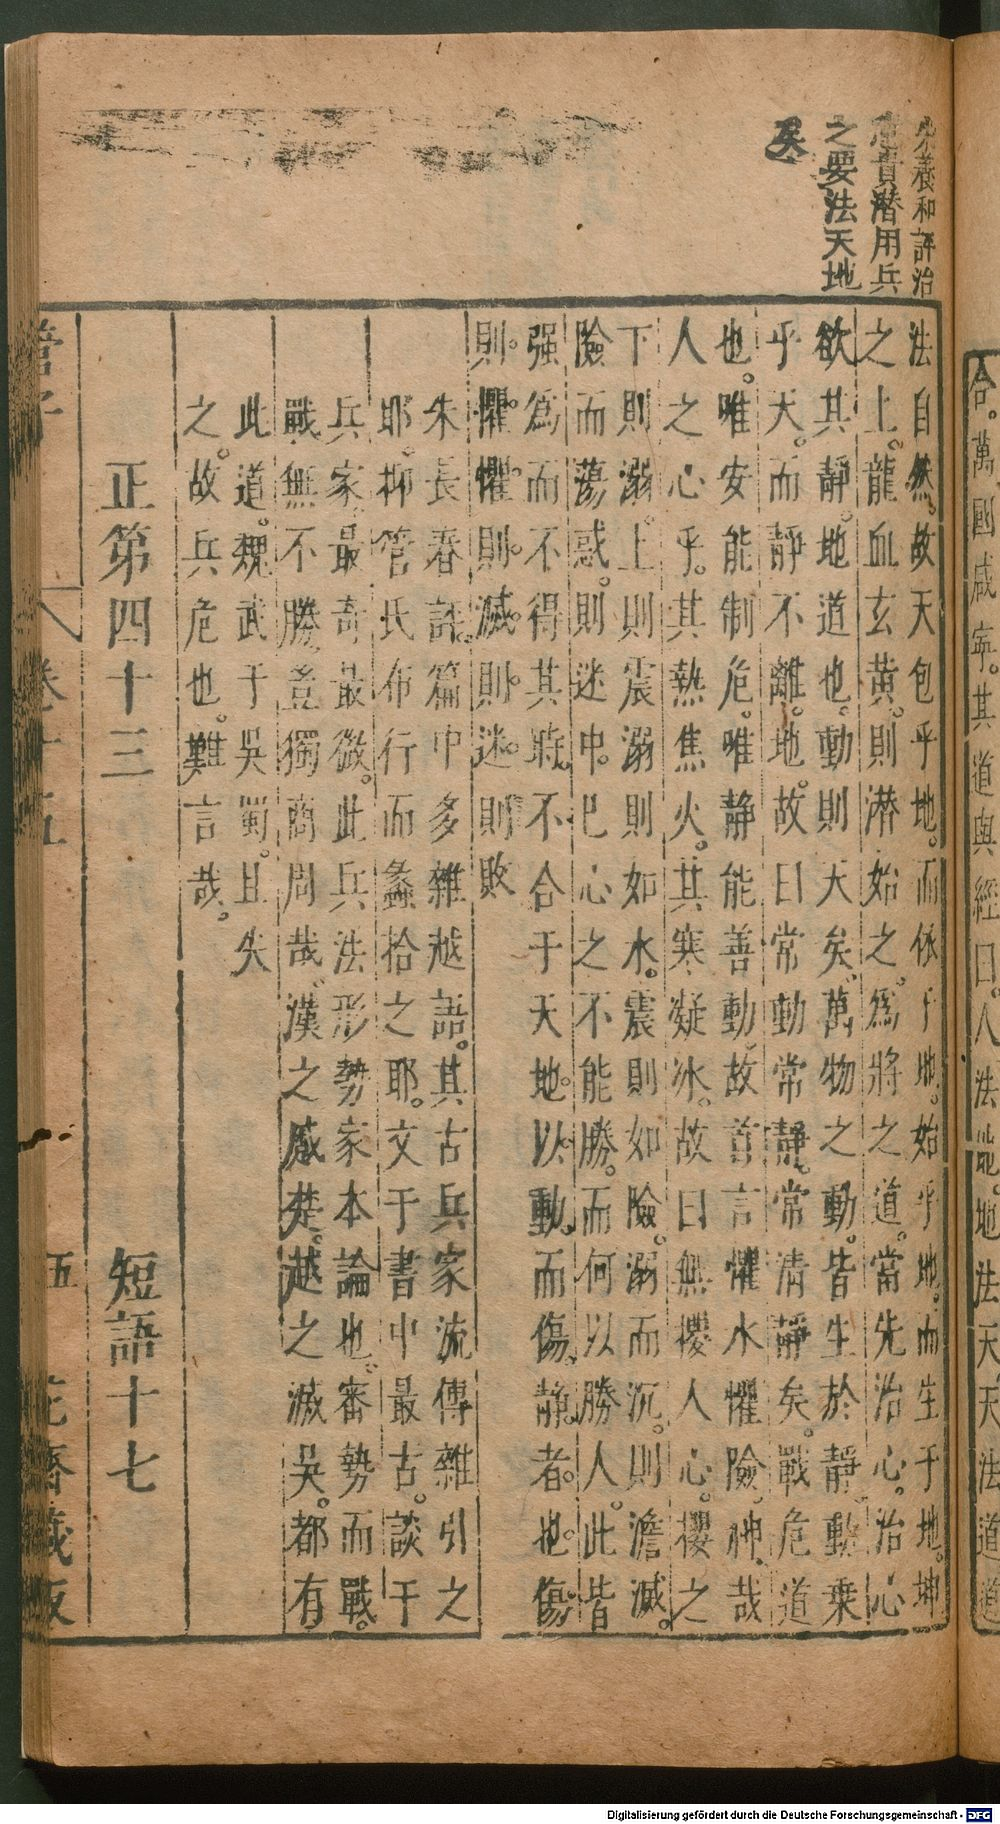 朱養和評治
心貴潛用兵
之要法天地
矣
法自然故天包乎地。而係于地。始乎地。而生于地。坤
之上。龍血玄黃。則潛始之。為將之道。當先治心。治心
欲其靜。地道也。動則天矣。萬物之動。皆生於靜。動乘
乎天。而靜不離。地。故曰常動常靜。常清靜矣。戰危道
也。唯安能制危。唯靜能善動。故首言懼水懼險。神哉
人之心乎。其熱焦火。其寒凝冰。故曰無攖人心。攖之
下則溺。上則震溺則如水。震則如險。溺而沉。則澹滅。
險而蕩惑。則迷中。巳心之不能勝。而何以勝人。此皆
强爲而不得其時。不合于天地。以動。而傷。靜者。也。傷。
則。懼。懼則。滅。則。迷。則敗
朱長春評。篇中多雜越語。其古兵家流傳雜引之
耶。抑管氏布行而蠡拾之耶。文于書中最古。談于
兵家。最奇最微。此兵法形勢家本論也。審勢而戰。
戰無不勝。豈獨商周哉。漢之威楚。越之滅吳。都有
此道。魏武于吳蜀。且失
之。故兵危也。難言哉。
正第四十三 短語十七
管子 卷十五 五 花齋藏板
合。萬國咸寧。其道與經曰。人法地。地法天。天法道道
Digitalisierung gefördert durch die Deutsche Forschungsgemeinschaft - DFG